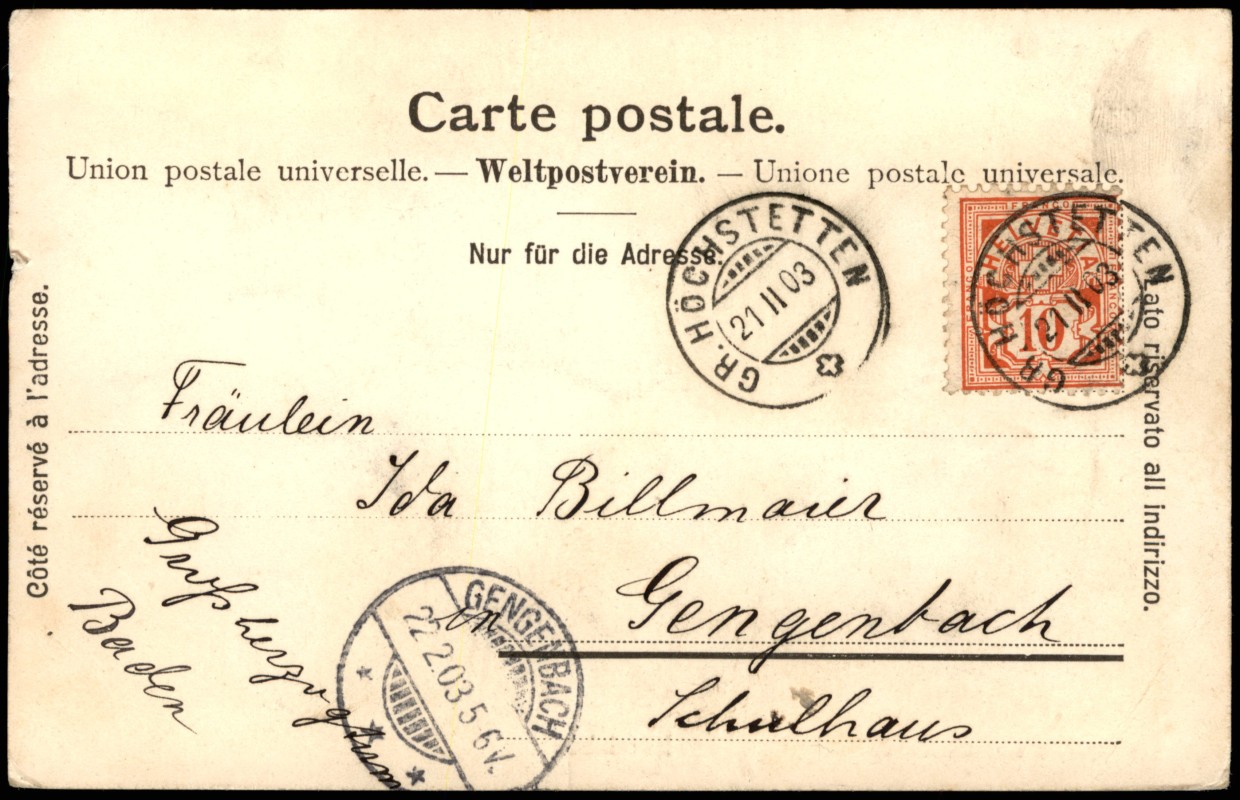 Carte postale.
Union postale universelle. — Weltpostverein. — Unione postale universale.
Nur für die Adresse.
GR. HÖCHSTETTEN
21 II 03
FRANCO
HELVETIA
10
GR. HÖCHSTETTEN
21 II 03
Côté réservé à l'adresse.
Lato riservato all indirizzo.
Fräulein
Ida Billmaier
in Gengenbach
Schulhaus
Großherzogtum
Baden
GENGENBACH
22.2.03.5-6V.